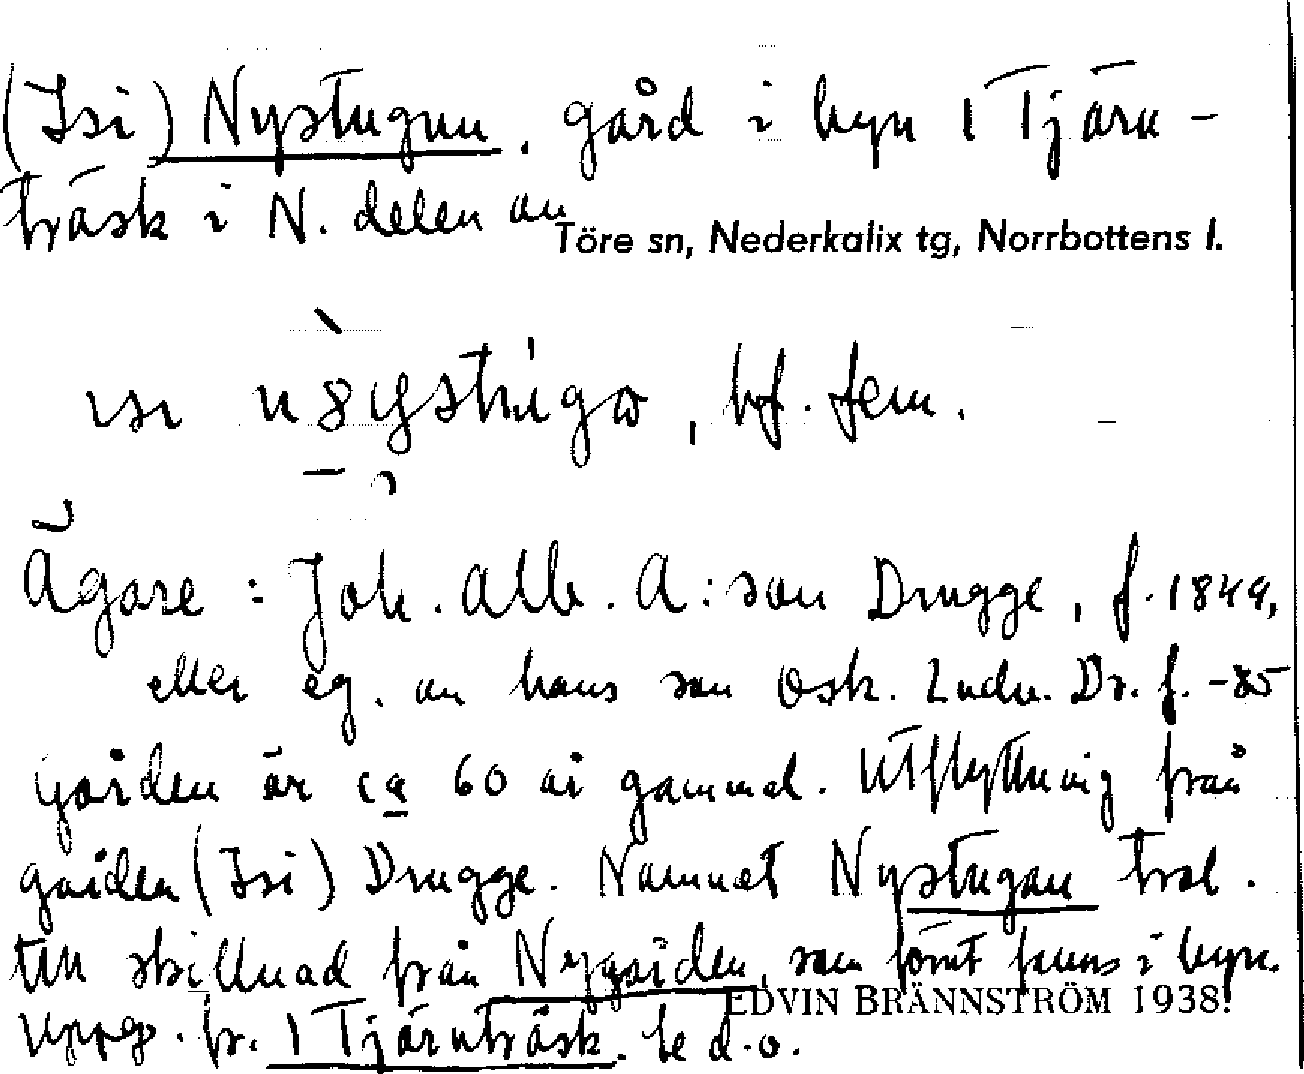 (Isi) Nystugan, gård i byn 1 Tjärn-
träsk i N. delen av
Töre sn, Nederkalix tg, Norrbottens l.
bf. fem.
Ägare: Joh. Alb. A:son Drugge, f. 1849,
eller eg. av hans son Osk. Ludv. Dr. f. -85
Gården är ca 60 år gammal. Utflyttning från
gården (Isi) Drugge. Namnet Nystugan trol.
till skillnad från Nygården, som förut fanns i byn.
EDVIN BRÄNNSTRÖM 1938.
Uppg. fr. 1 Tjärnträsk. se d.o.